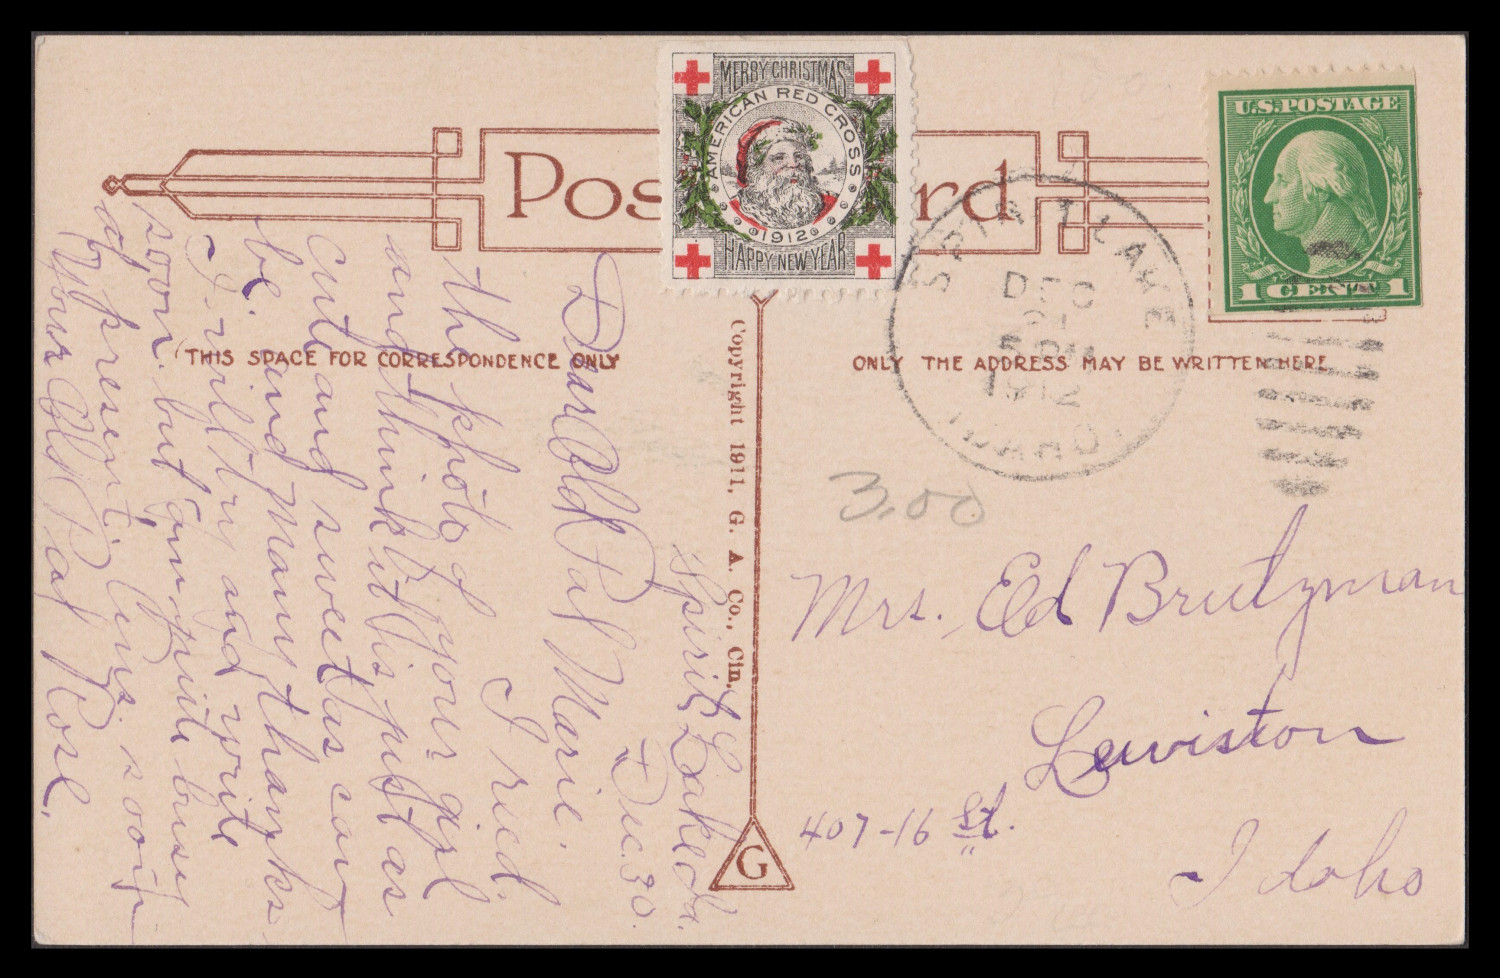 Post Card
MERRY CHRISTMAS
AMERICAN RED CROSS
1912
HAPPY NEW YEAR
U.S. POSTAGE
1 CENT 1
SPIRIT LAKE
DEC
31
1912
IDAHO
THIS SPACE FOR CORRESPONDENCE ONLY
ONLY THE ADDRESS MAY BE WRITTEN HERE
Copyright 1911, G. A. Co., Cin.
G
3.00
Mrs. Ed Brutzman
Lewiston
407-16 St.
Idaho
Spirit Lake Ida.
Dec. 30.
Dear Old Pal Marie.
I recd.
the photo of your girl
and think it is just as
cute and sweet as can
be and many thanks
I will try and write
soon. but am quite busy
at present. Ans. soon
Your Old Pal Rose.